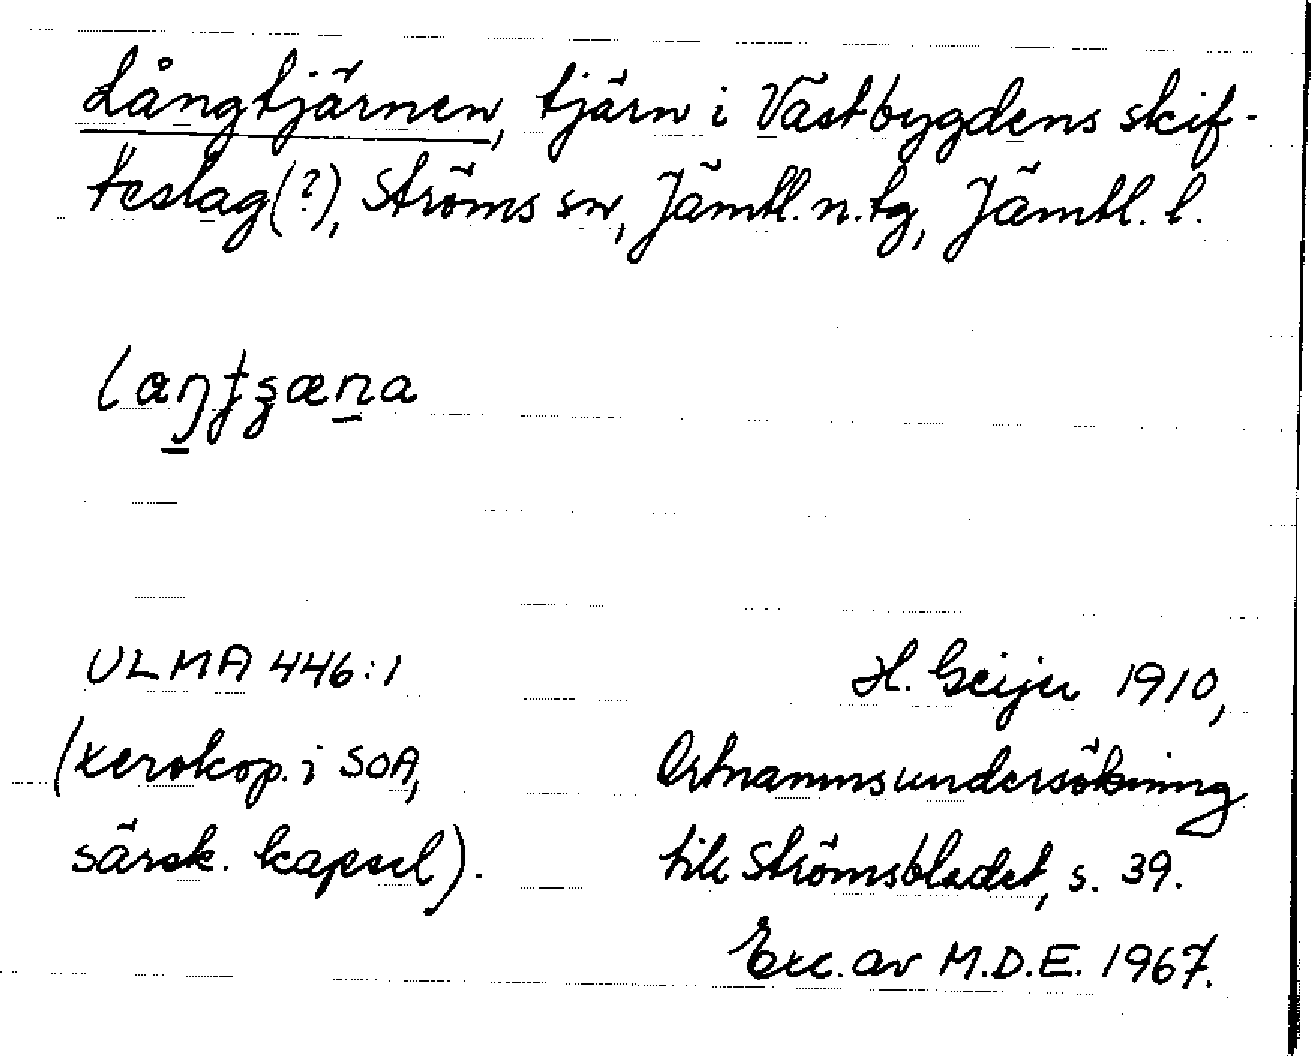 Långtjärnen, tjärn i Västbygdens skif-
teslag(?), Ströms sn, Jämtl. n. tg, Jämtl. l.
laŋtʂæna
ULMA 446:1
(xerokop. i SOA,
särsk. kapsel).
H. Geijer 1910,
Ortnamnsundersökning
till Strömsbladet, s. 39.
Exc. av M.D.E. 1967.